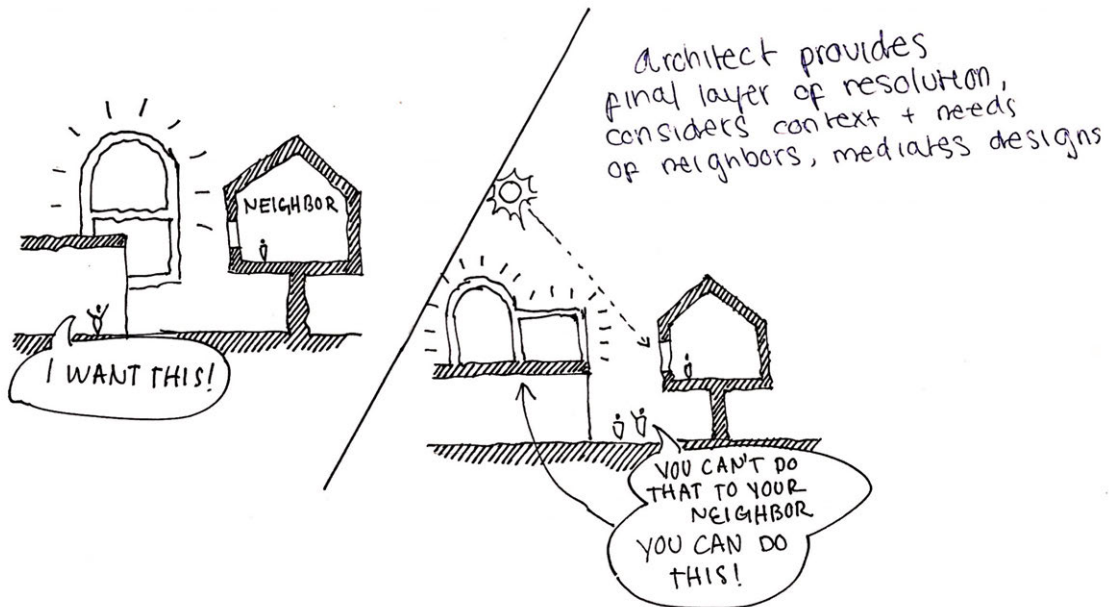 NEIGHBOR
I WANT THIS!
architect provides
final layer of resolution,
considers context + needs
of neighbors, mediates designs
YOU CAN'T DO
THAT TO YOUR
NEIGHBOR
YOU CAN DO
THIS!